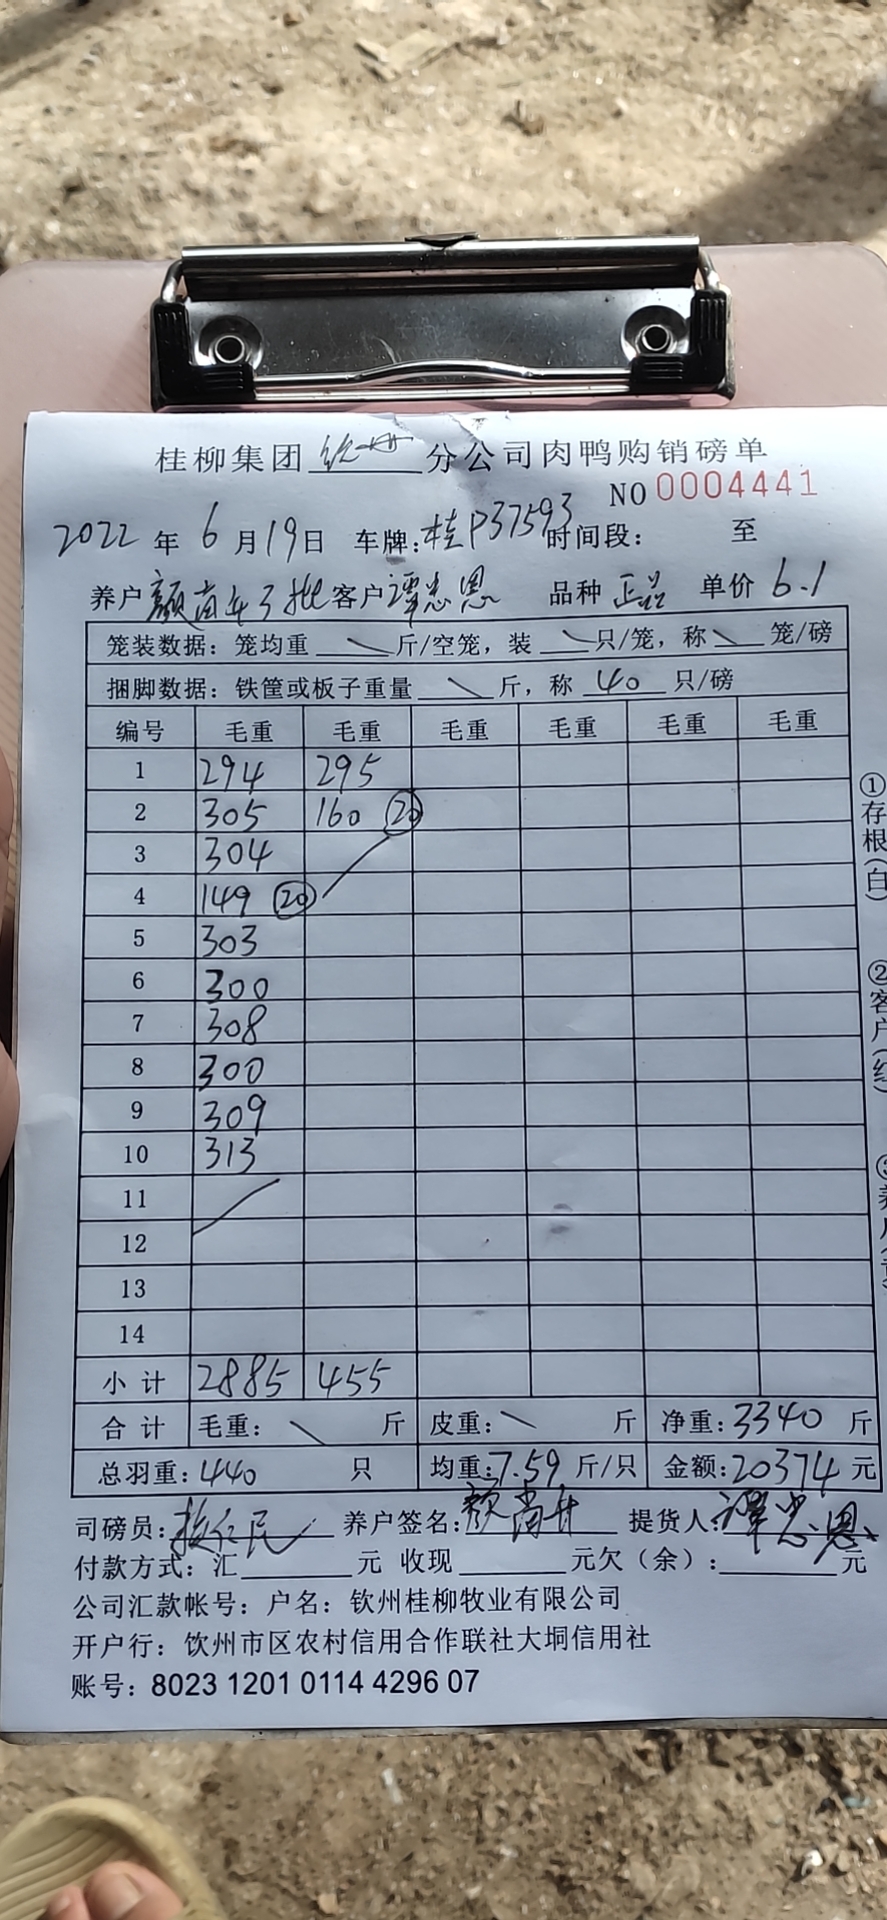 桂柳集团 钦州 分公司肉鸭购销磅单
NO 0004441
2022 年 6 月 19 日 车牌：桂P37593 时间段： 至
养户 颜尚年3批 客户 谭忠恩 品种 正品 单价 6.1
笼装数据：笼均重 \ 斤/空笼，装 \ 只/笼，称 \ 笼/磅
捆脚数据：铁筐或板子重量 \ 斤，称 40 只/磅
编号 毛重 毛重 毛重 毛重 毛重 毛重
1 294 295
2 305 160 ⑳
3 304
4 149 ⑳
5 303
6 300
7 308
8 300
9 309
10 313
11
12
13
14
小计 2885 455
合计 毛重： \ 斤 皮重： \ 斤 净重：3340 斤
总羽重：440 只 均重：7.59 斤/只 金额：20374 元
司磅员： 养户签名： 提货人：谭忠恩
付款方式：汇 元 收现 元欠（余）： 元
公司汇款帐号：户名：钦州桂柳牧业有限公司
开户行：钦州市区农村信用合作联社大垌信用社
账号：8023 1201 0114 4296 07
①存根（白）
②客户（红）